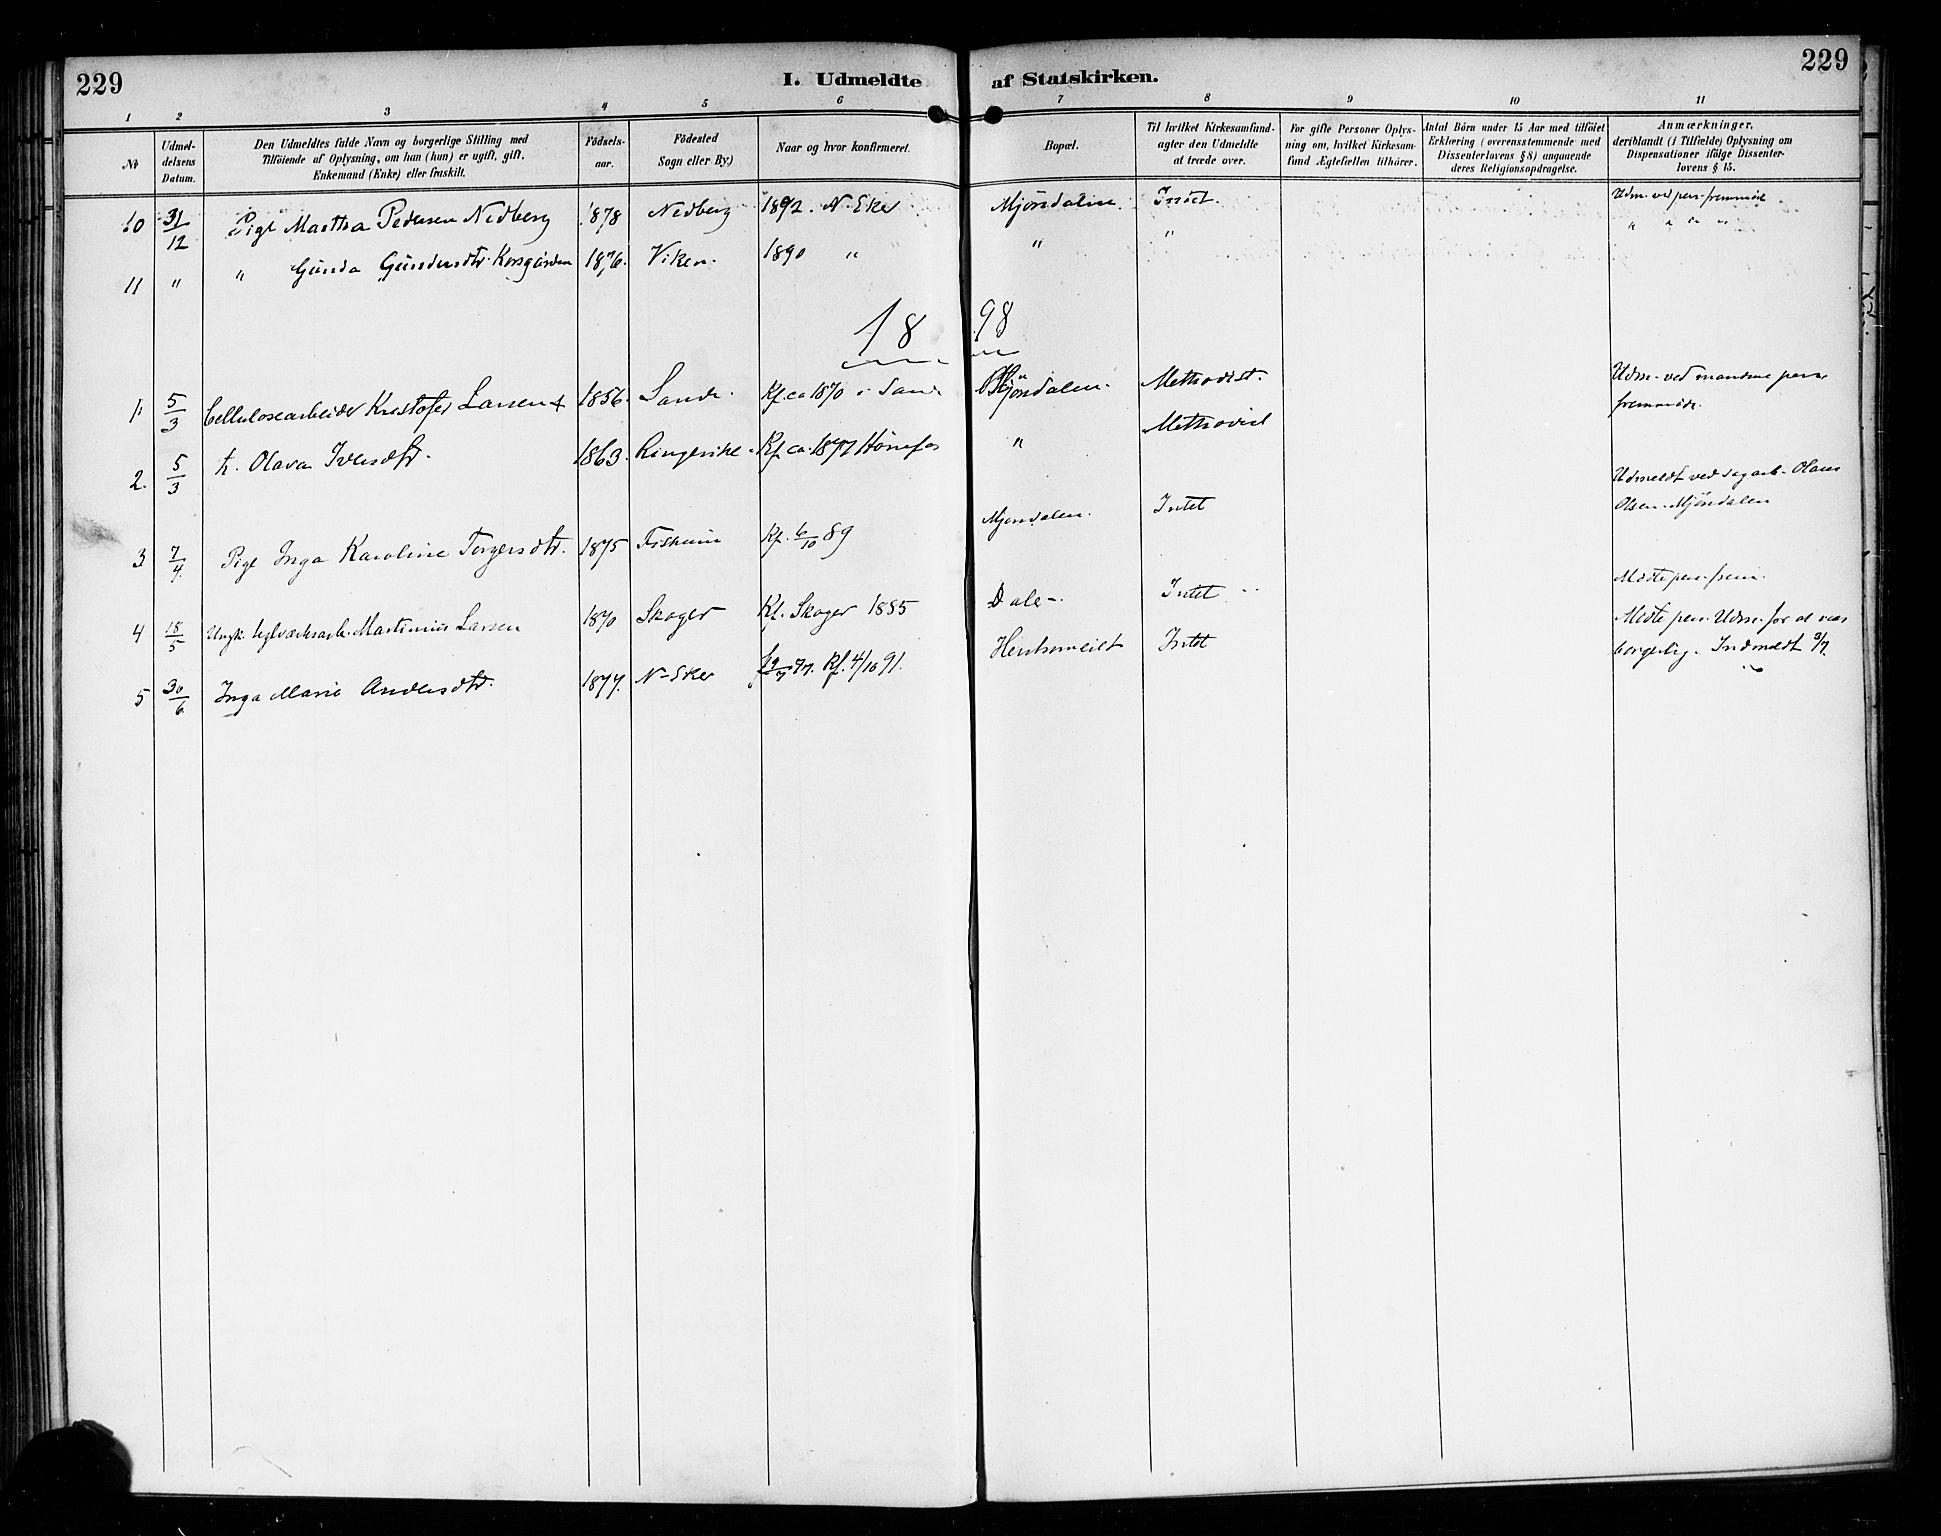 229 I. Udmeldte af Statskirken. 229
1 2 3 4 5 6 7 8 9 10 11
No
Udmeldelsens Datum.
Den Udmeldtes fulde Navn og borgerlige Stilling med
Tilföiende af Oplysning, om han (hun) er ugift, gift,
Enkemand (Enke) eller fraskilt.
Födsels-
aar.
Födested
Sogn eller By.)
Naar og hvor konfirmeret.
Bopæl.
Til hvilket Kirkesamfund-
agter den Udmeldte
at træde over.
For gifte Personer Oplys-
ning om, hvilket Kirkesam-
fund Ægtefællen tilhörer.
Antal Börn under 15 Aar med tilföiet
Erklæring (overensstemmende med
Dissenterlovens § 8) angaaende
deres Religionsopdragelse.
Anmærkninger,
deriblandt (i Tilfælde) Oplysning om
Dispensationer ifölge Dissenter-
lovens § 15.
10 31/12 Pige Martha Pedersen Nedberg 1878 Nedberg 1892. N. Eker Mjöndalen Intet. Udm. ved pers. fremmöde
11 " " Gunda Gundersdtr. Korsgården 1876. Viken. 1890 " " " " " " "
1898
1 5/3 Cellulosearbeider Kristofer Larsen & 1856. Sande. Kf. ca 1870 i Sande Mjöndalen. Methodist. Udm. ved mandens pers. fremmöde.
2. 5/3 h. Olava Iversdtr. 1863. Ringerike. Kf. ca. 1877 Hönefos " Methodist
3 7/4 Pige Inga Karoline Torgersdtr. 1875 Fiskum Kf. 6/10 89 Mjöndalen. Intet Udmeldt ved sagarb. Olaus Olsen. Mjöndalen
4 18/5 Ungk. teglværksarb. Martinius Larsen 1870 Skoger Kf. Skoger 1885 Dale. Intet Mödte pers. frem.
5 30/6 Inga Marie Andersdtr. 1877. N-Eker Kf. 4/10 91. Intet Mödte pers. Udm. for at vies borgerlig. Indmeldt 9/7.